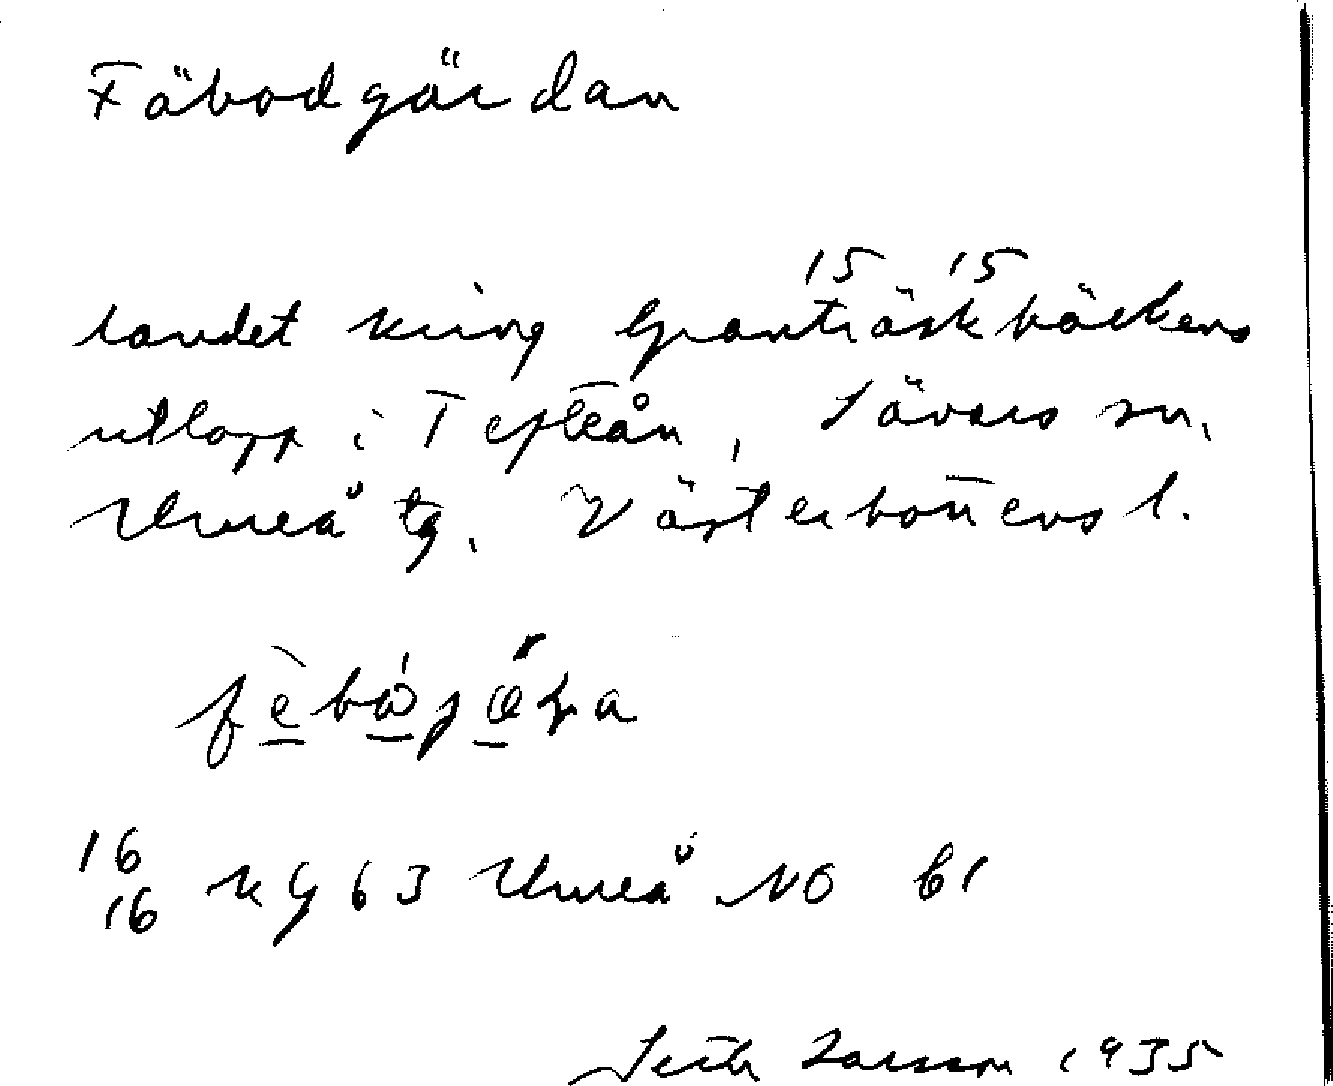 Fäbodgärdan
15 15
landet kring Granträskbäckens
utlopp i Tefteån, Sävars sn,
Umeå tg, Västerbottens l.
16
16 kg 63 Umeå NO b1
Seth Larsson 1935